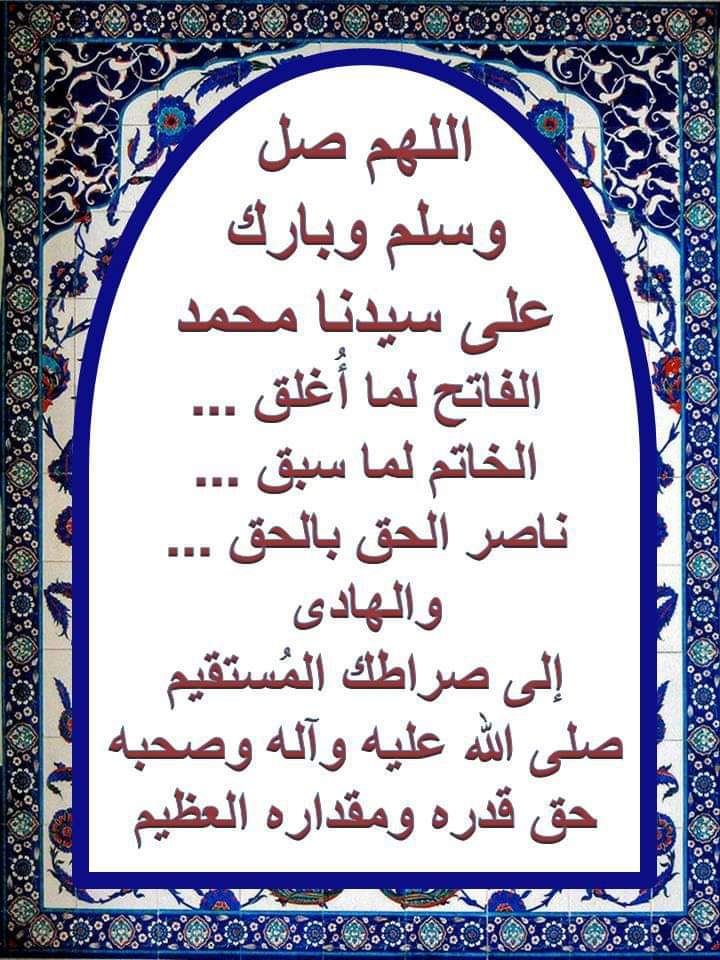 اللهم صل
وسلم وبارك
على سيدنا محمد
الفاتح لما أُغلق ...
الخاتم لما سبق ...
ناصر الحق بالحق ...
والهادى
إلى صراطك المُستقيم
صلى الله عليه وآله وصحبه
حق قدره ومقداره العظيم